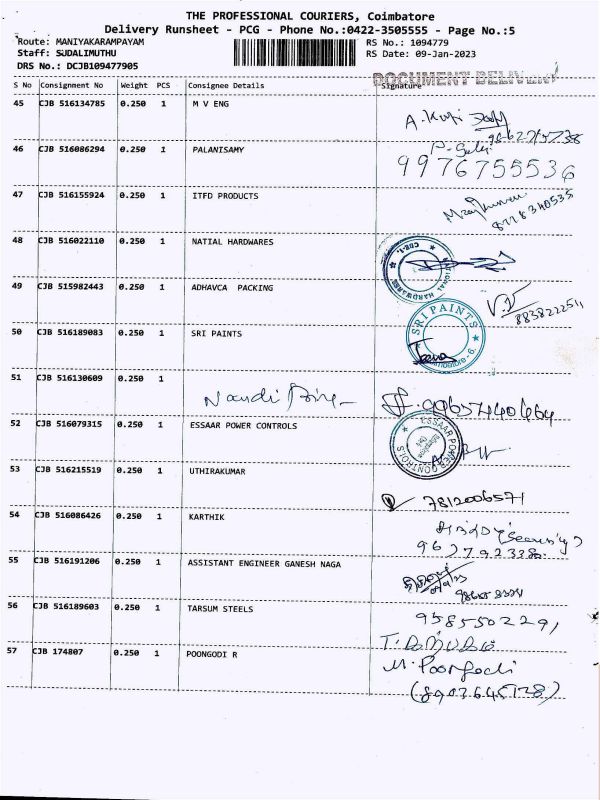 THE PROFESSIONAL COURIERS, Coimbatore
Delivery Runsheet - PCG - Phone No.:0422-3505555 - Page No.:5
Route: MANIYAKARAMPAYAM RS No.: 1094779
Staff: SUDALIMUTHU RS Date: 09-Jan-2023
DRS No.: DCJB109477905
S No Consignment No Weight PCS Consignee Details Signature
45 CJB 516134785 0.250 1 M V ENG
46 CJB 516086294 0.250 1 PALANISAMY
9976755536
47 CJB 516155924 0.250 1 ITFD PRODUCTS
48 CJB 516022110 0.250 1 NATIAL HARDWARES
49 CJB 515982443 0.250 1 ADHAVCA PACKING
SRI PAINTS
50 CJB 516189083 0.250 1 SRI PAINTS
51 CJB 516130609 0.250 1
52 CJB 516079315 0.250 1 ESSAAR POWER CONTROLS
ESSAAR POWER CONTROLS
53 CJB 516215519 0.250 1 UTHIRAKUMAR
7812006571
54 CJB 516086426 0.250 1 KARTHIK
55 CJB 516191206 0.250 1 ASSISTANT ENGINEER GANESH NAGA
56 CJB 516189603 0.250 1 TARSUM STEELS
57 CJB 174807 0.250 1 POONGODI R
M. Poongodi